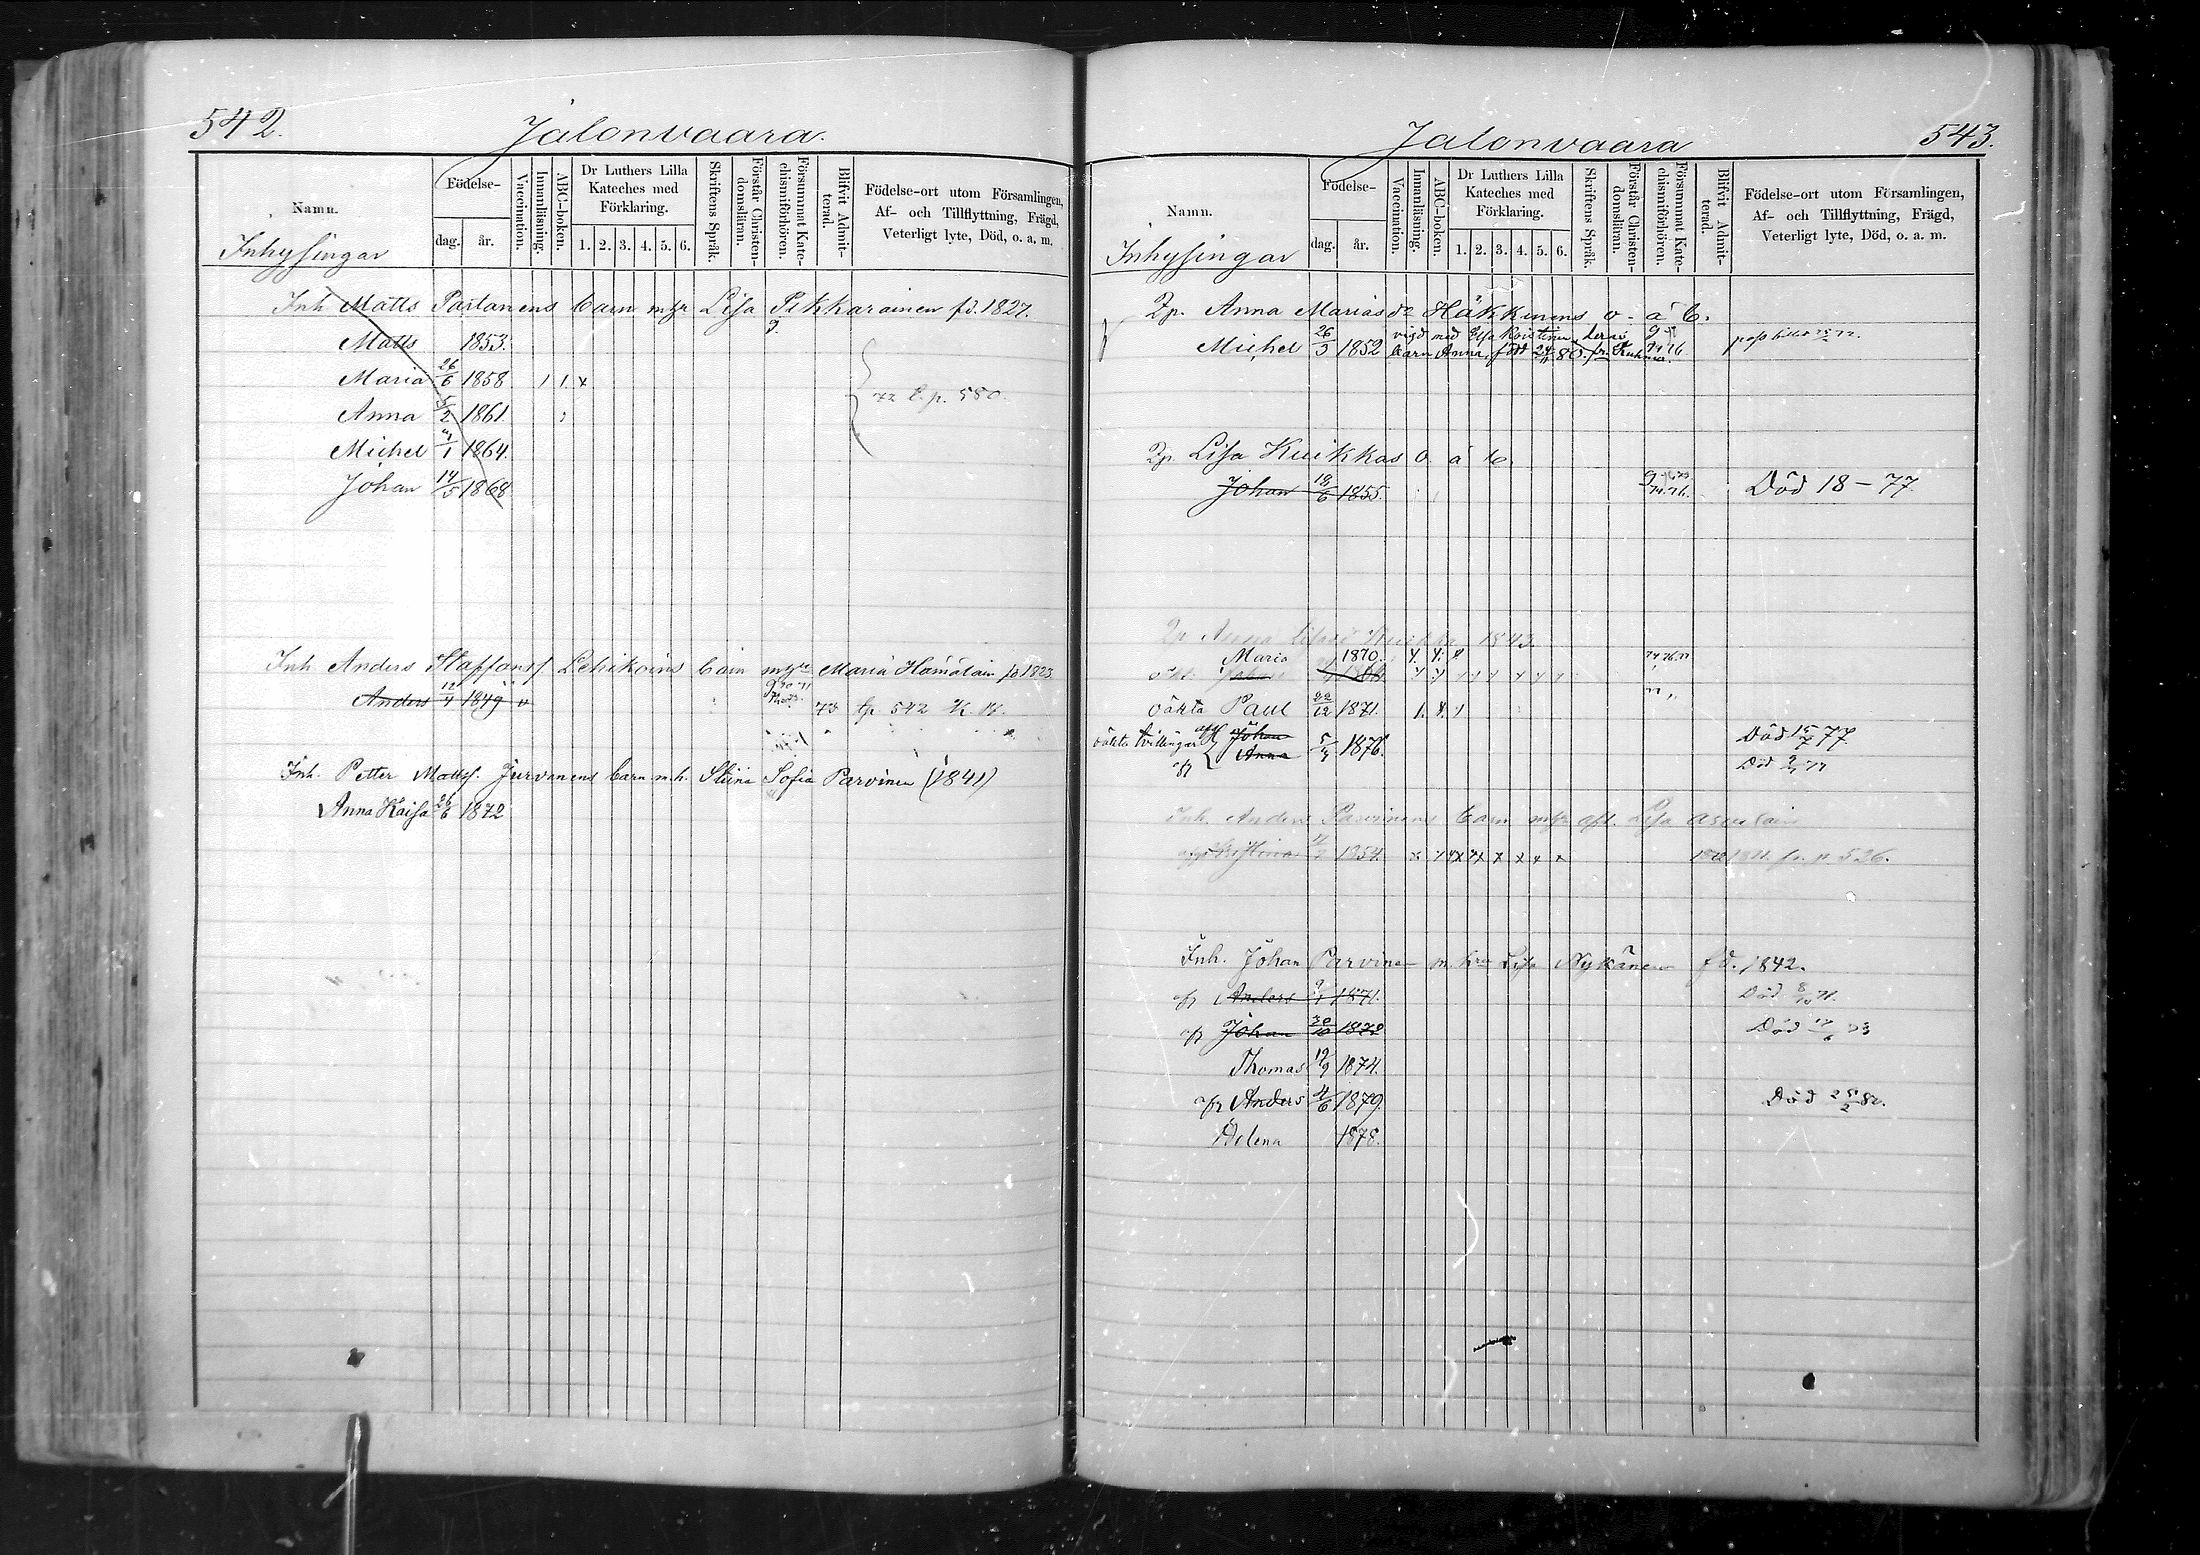 542.
Jalonvaara.
Namn.
Födelse-
dag. år.
Vaccination.
Innanläsning.
ABC-boken.
Dr Luthers Lilla
Kateches med
Förklaring.
1. 2. 3. 4. 5. 6.
Skriftens Språk.
Förstår Christen-
domsläran.
Försummat Kate-
chismiförhören.
Blifvit Admit-
terad.
Födelse-ort utom Församlingen,
Af- och Tillflyttning, Frägd,
Veterligt lyte, Död, o. a. m.
Inhysingar
Inh Matts Partanens barn m hr Lisa Pikkarainen fd. 1827.
Matts 1853.
Maria 26/6 1858
72 t. p. 580.
Anna 5/2 1861.
Michel 1864.
Johan 14/5 1868
Inh Anders Staffanss Lehikoins barn Maria Hämäläin fd 1823
Anders 12/4 1849 v
tp 542
Inh. Petter Mattss. Jurvanens barn m. h. Stiina Sofia Parvinen (1841)
Anna Kaisa 26/6 1872
Jalonvaara
543.
Namn.
Födelse-
dag. år.
Vaccination.
Innanläsning.
ABC-boken.
Dr Luthers Lilla
Kateches med
Förklaring.
1. 2. 3. 4. 5. 6.
Skriftens Språk.
Förstår Christen-
domsläran.
Försummat Kate-
chismiförhören.
Blifvit Admit-
terad.
Födelse-ort utom Församlingen,
Af- och Tillflyttning, Frägd,
Veterligt lyte, Död, o. a. m.
Inhysingar
Anna Mariasdr Häkkinens o- ä b.
vigd med Elsa Kristina, deras
Michel 26/3 1852 barn Anna, född 80.
Lisa Kuikkas o ä b
Johan 18/6 1855. Död 18 - 77.
Anna Kuikka 1843.
Maria 1870.
oäkta Paul 22/12 1871.
oäkta tvillingar Johan Död 77.
Anna 1876.
Död
Inh. Anders Parvinens barn Lisa
Kristina 1854. fr. p. 526.
Inh. Johan Parvinen m. hr Lisa Nykänen fd. 1842.
Anders 1871. Död 8/10 71.
Johan 30/10 1872 Död
Thomas 19/9 1874.
Anders 4/6 1879. Död 25/2 82.
Helena 1878.